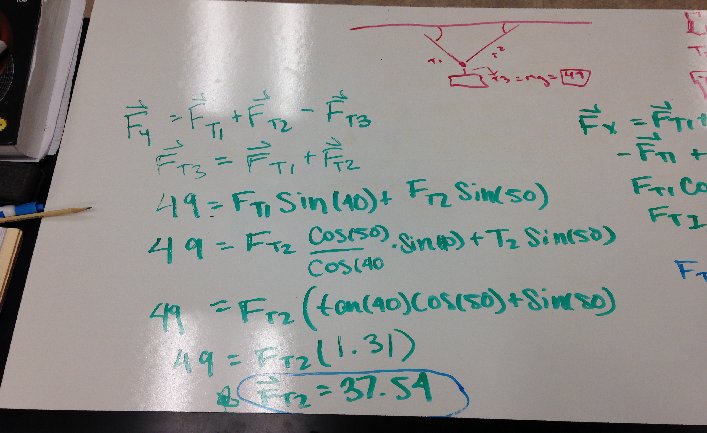 T1 T2
T3 = mg = 49
F⃗y = F⃗T1 + F⃗T2 - F⃗T3
F⃗T3 = F⃗T1 + F⃗T2
49 = FT1 Sin(40) + FT2 Sin(50)
49 = FT2 Cos(50)/Cos(40 · Sin(40) + T2 Sin(50)
49 = FT2 (tan(40)Cos(50) + Sin(50)
49 = FT2 (1.31)
F⃗T2 = 37.54
F⃗x = F⃗T1 +
- F⃗T1 +
FT1 Co
FT1